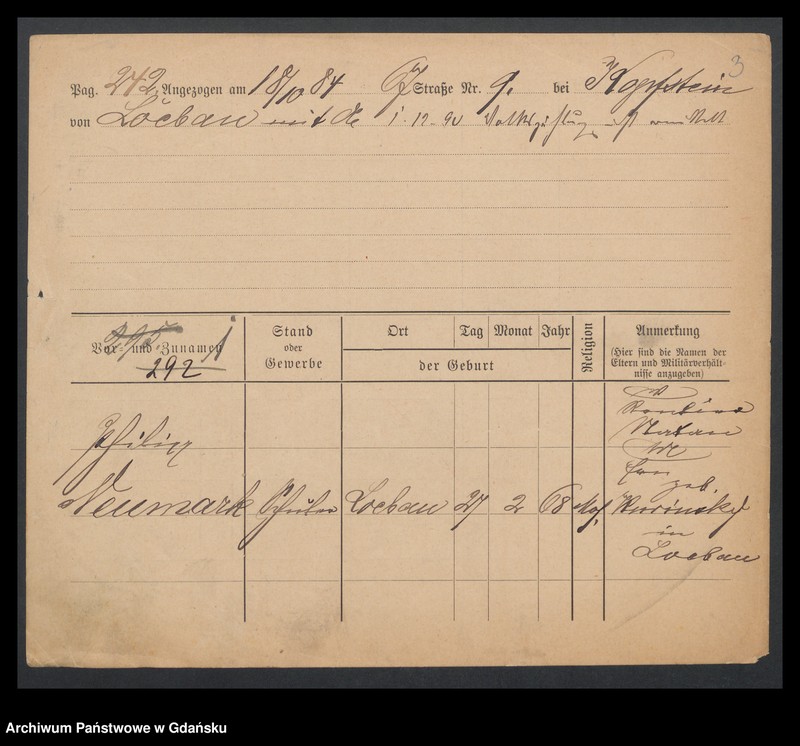 3
Pag. 242 Angezogen am 18/10 84 Straße Nr. 9. bei Kopfstein
von Löebau mit 1-12-90
Vor- und Zunamen
292
Stand
oder
Gewerbe
Ort Tag Monat Jahr
der Geburt
Religion
Anmerkung
(Hier sind die Namen der
Eltern und Militärverhält-
nisse anzugeben)
Philipp
Neumark Schüler Loebau 27 2 68 Mos.
V
Natan
M
geb.
in
Loebau
Archiwum Państwowe w Gdańsku